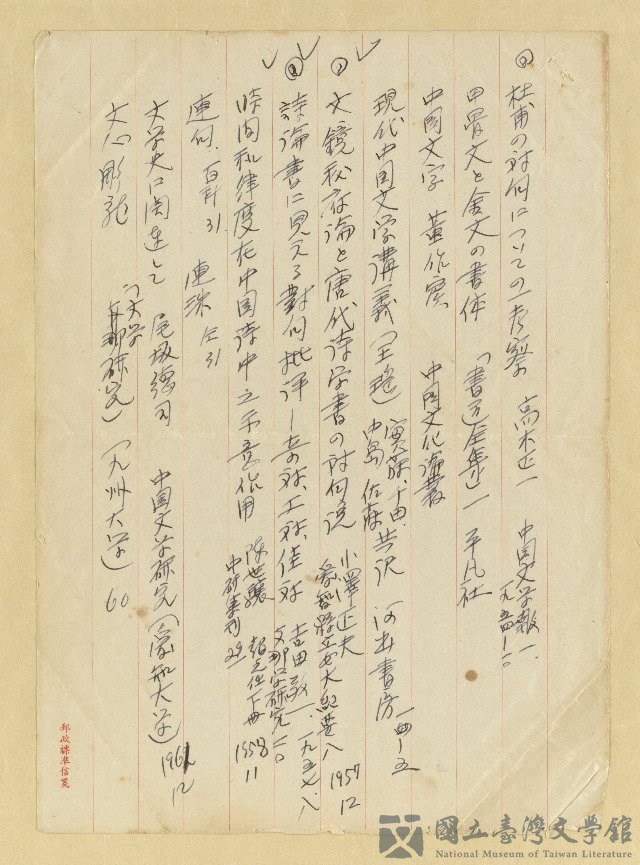 杜甫の対句についての一考察 高木正一 中国文学報一.
一九五四・一〇
甲骨文と金文の書体 「書道全集」一 平凡社
中国文字 董作賓 中国文化論叢
現代中国文学講義(王瑶 実藤、千田、
中島、佐藤 共訳 河出書房
文鏡秘府論と唐代詩学書の対句説 小澤正夫
愛知県立女大紀要八 1957
12
詩論書に見える對句批評 吉田敬一
支那学研究
一九五七、八
時間和律度在中国詩中之示意作用 陳世驤
中研集刊29 1958
11
連句. 31 連珠 31
文学史に関連して 尾坂徳司 中国文学研究(愛知大学) 1961
12
文心雕龍 「文学研究」(九州大学) 60
郵政標準信箋
國立臺灣文學館
National Museum of Taiwan Literature